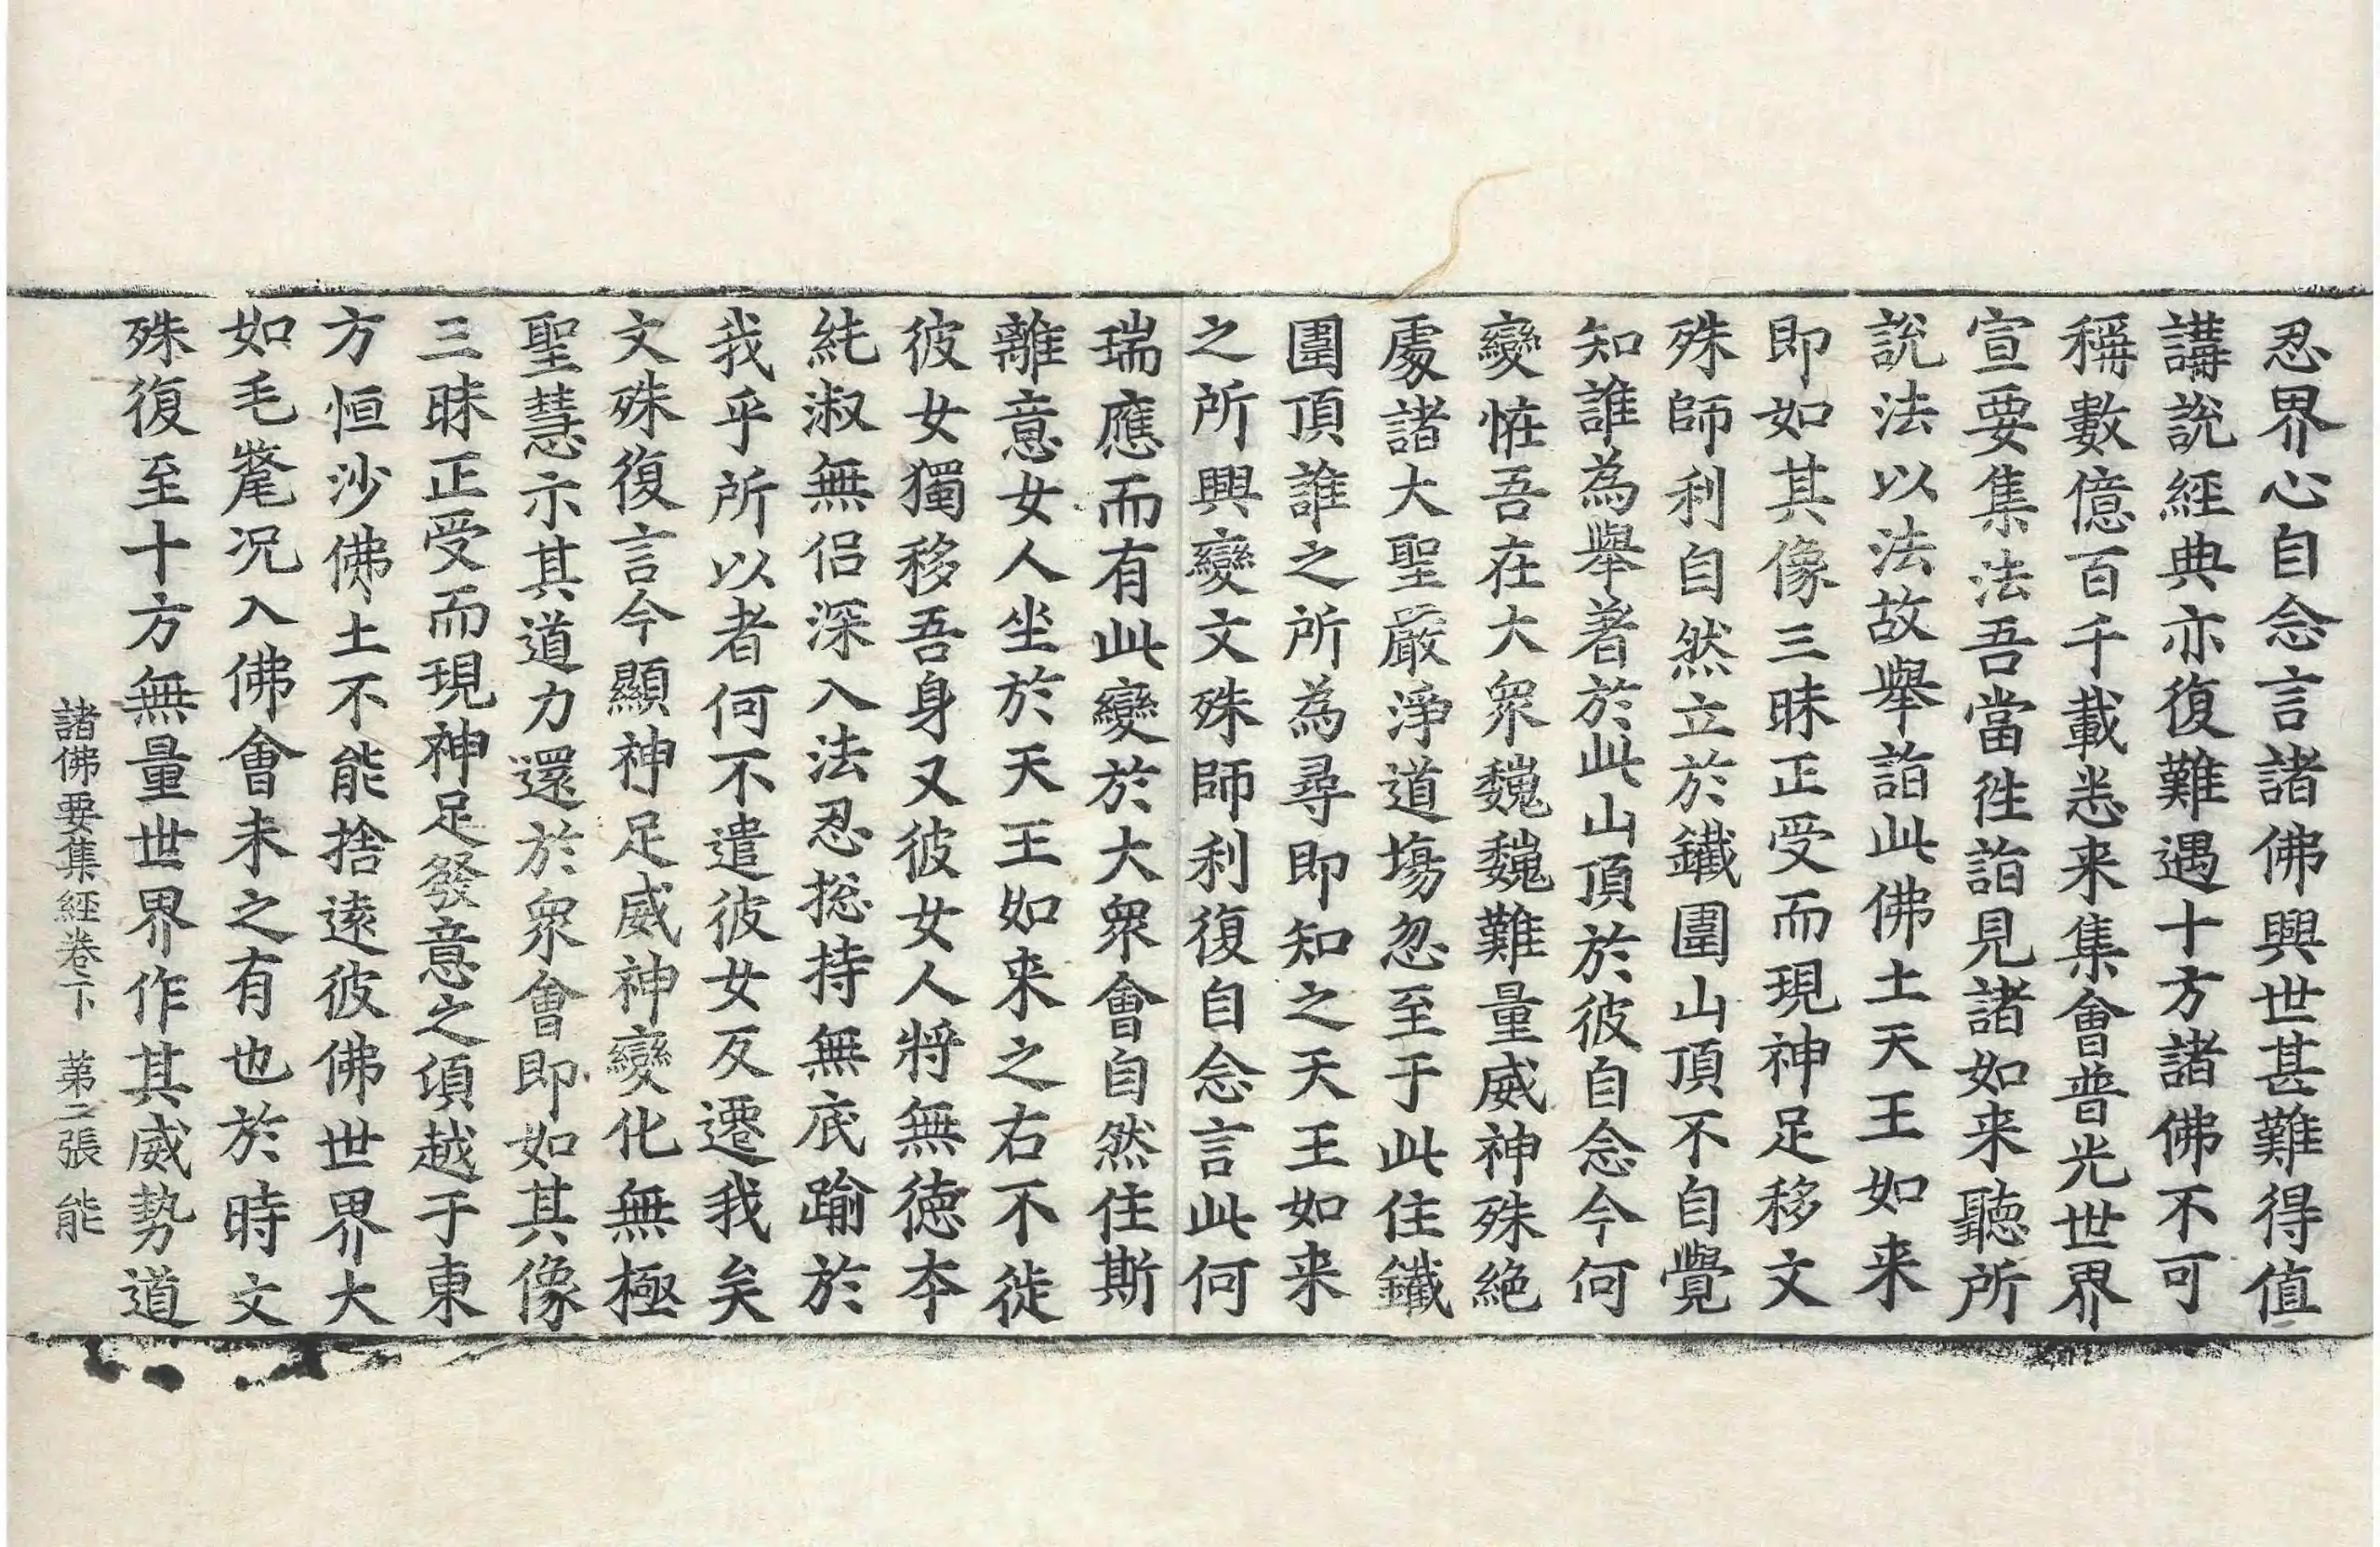 忍界心自念言諸佛興世甚難得值
講説經典亦復難遇十方諸佛不可
稱數億百千載悉来集會普光世界
宣要集法吾當徃詣見諸如来聽所
説法以法故舉詣此佛土天王如来
即如其像三昧正受而現神足移文
殊師利自然立於鐵圍山頂不自覺
知誰為舉著於此山頂於彼自念今何
變恠吾在大衆巍巍難量威神殊絶
處諸大聖嚴淨道塲忽至于此住鐵
圍頂誰之所為尋即知之天王如来
之所興變文殊師利復自念言此何
瑞應而有此變於大衆會自然住斯
離意女人坐於天王如来之右不徙
彼女獨移吾身又彼女人將無德本
純淑無侶深入法忍捴持無底踰於
我乎所以者何不遣彼女反遷我矣
文殊復言今顯神足威神變化無極
聖慧示其道力還於衆會即如其像
三昧正受而現神足發意之頃越于東
方恒沙佛土不能捨遠彼佛世界大
如毛氂况入佛會未之有也於時文
殊復至十方無量世界作其威勢道
諸佛要集經卷下 第二張 能